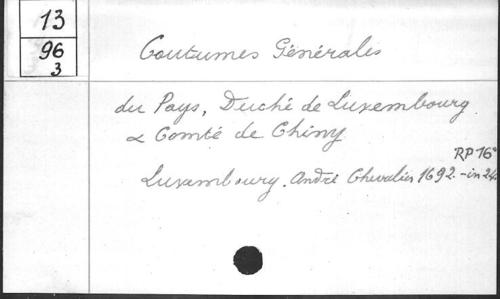 13
96
3
Coutumes Générales
du Pays, Duché de Luxembourg
& Comté de Chiny
RP 16°
Luxembourg. André Chevalier 1692. - in 24.